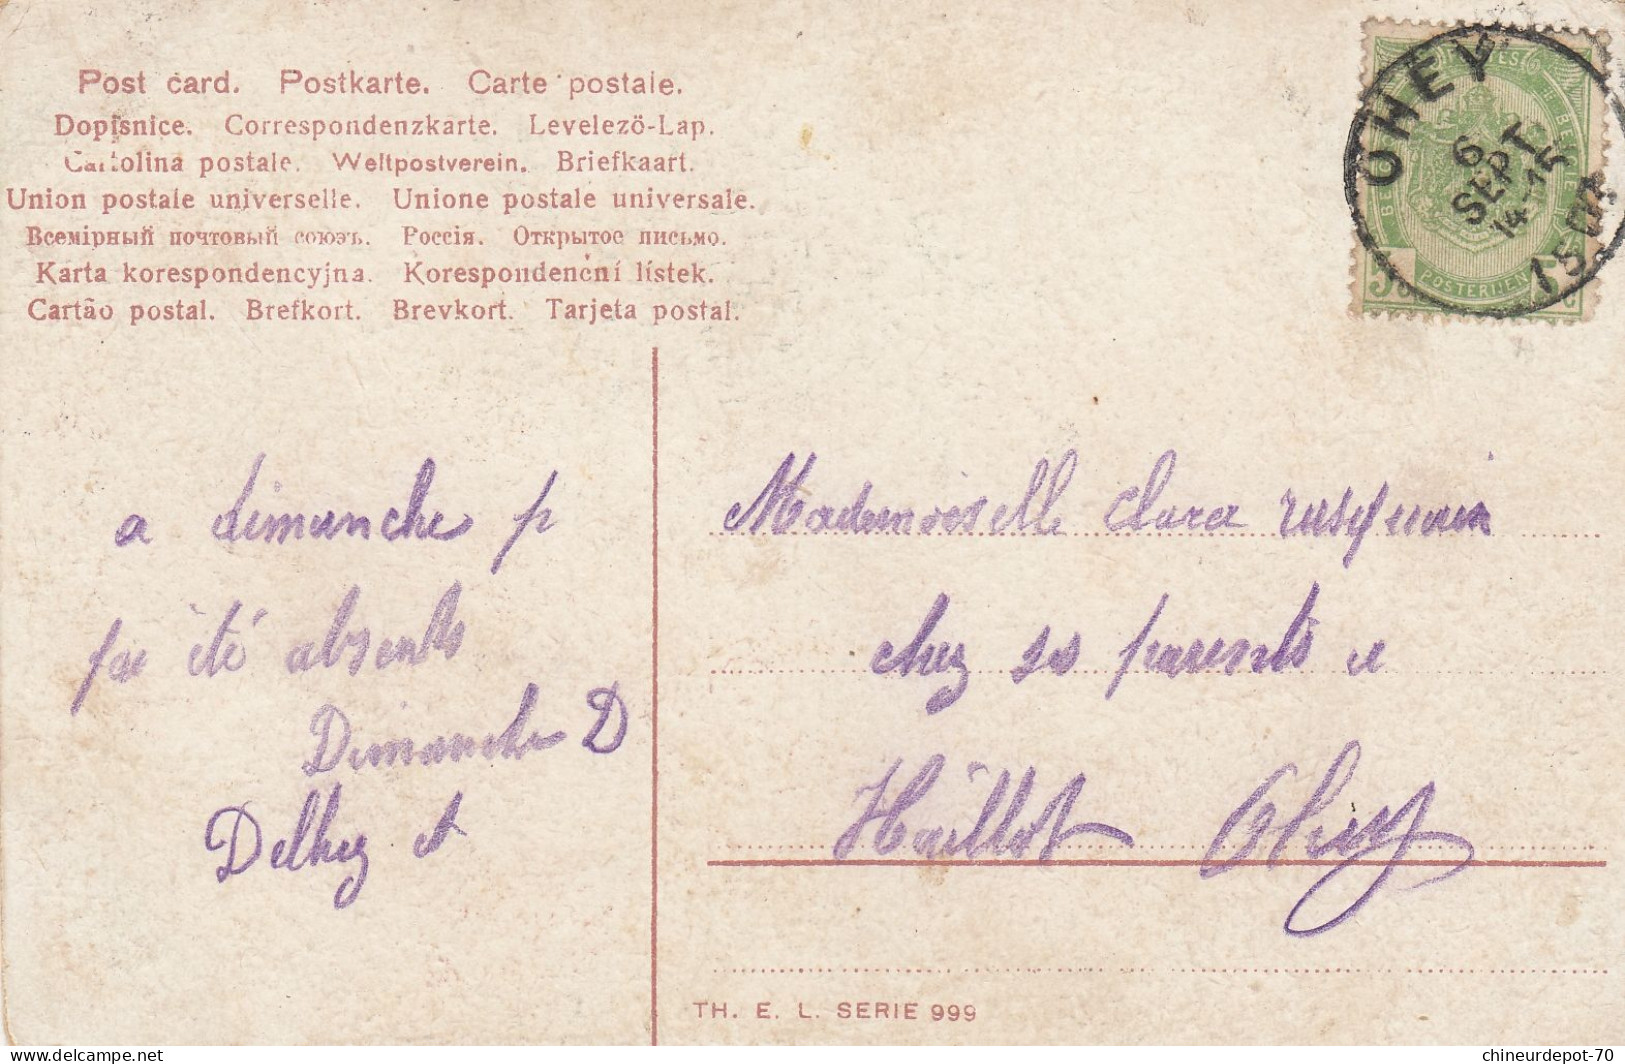 Post card. Postkarte. Carte postale.
Dopisnice. Correspondenzkarte. Levelezö-Lap.
Cartolina postale. Weltpostverein. Briefkaart.
Union postale universelle. Unione postale universale.
Всемірный почтовый союзъ. Россія. Открытое письмо.
Karta korespondencyjna. Korespondenční lístek.
Cartão postal. Brefkort. Brevkort. Tarjeta postal.
OHEY
6
SEPT
14-15
BELGIE
POSTERIJEN
5
a dimanche p
été absents
Dimanche D
Delhez et
Mademoiselle Clara
chez ses parents a
Haillot Ohey
TH. E. L. SERIE 999
chineurdepot-70